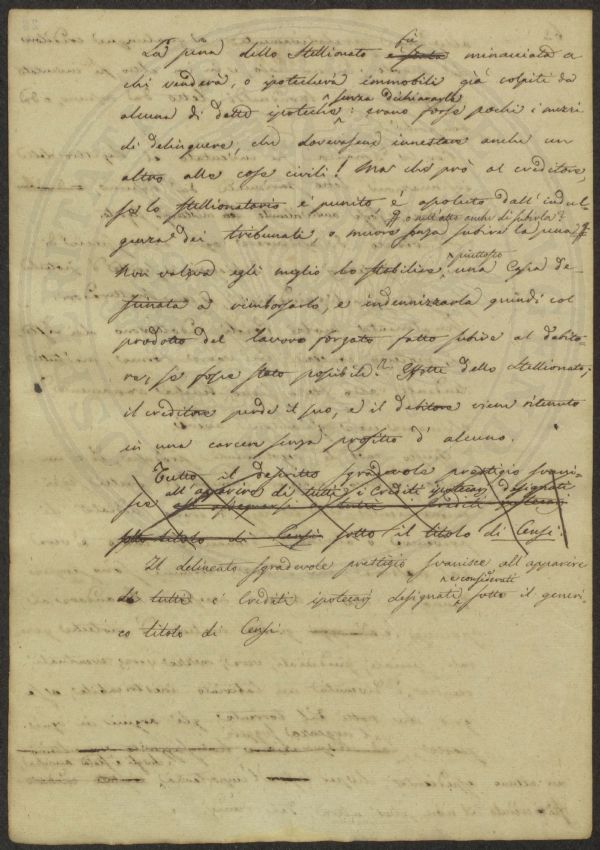 fù
La pena dello Stellionato è stata minacciata a
chi venderà, o ipotecherà immobili già colpiti da
senza dichiararlo
alcuna di dette ipoteche: erano forse pochi i mezzi
di delinquere, che dovevasene innestare anche un
altro alle cose civili! Ma che prò al creditore,
se lo stellionatario è punito è assoluto dall'indul-
o nell'atto anche di subirla?
genza dei tribunali, o muore senza subire la pena
piuttosto
Non valeva egli meglio lo stabilire una Casa de-
stinata a rimborsarlo, e indennizzarla quindi col
prodotto del lavoro forzato fatto subire al debito-
re, se fosse stato possibile? Effetti dello Stellionato;
il creditore perde il suo, e il debitore viene ritenuto
in una carcere senza profitto d'alcuno.
Tutto il descritto sgradevole prestigio svani-
all'apparire di tutti i Crediti ipotecarj designati
sce
titolo di Censi sotto il titolo di Censi.
Il delineato sgradevole prestigio svanisce all'apparire
e considerati
di tutti i Crediti ipotecarj designati, sotto il generi-
co titolo di Censi